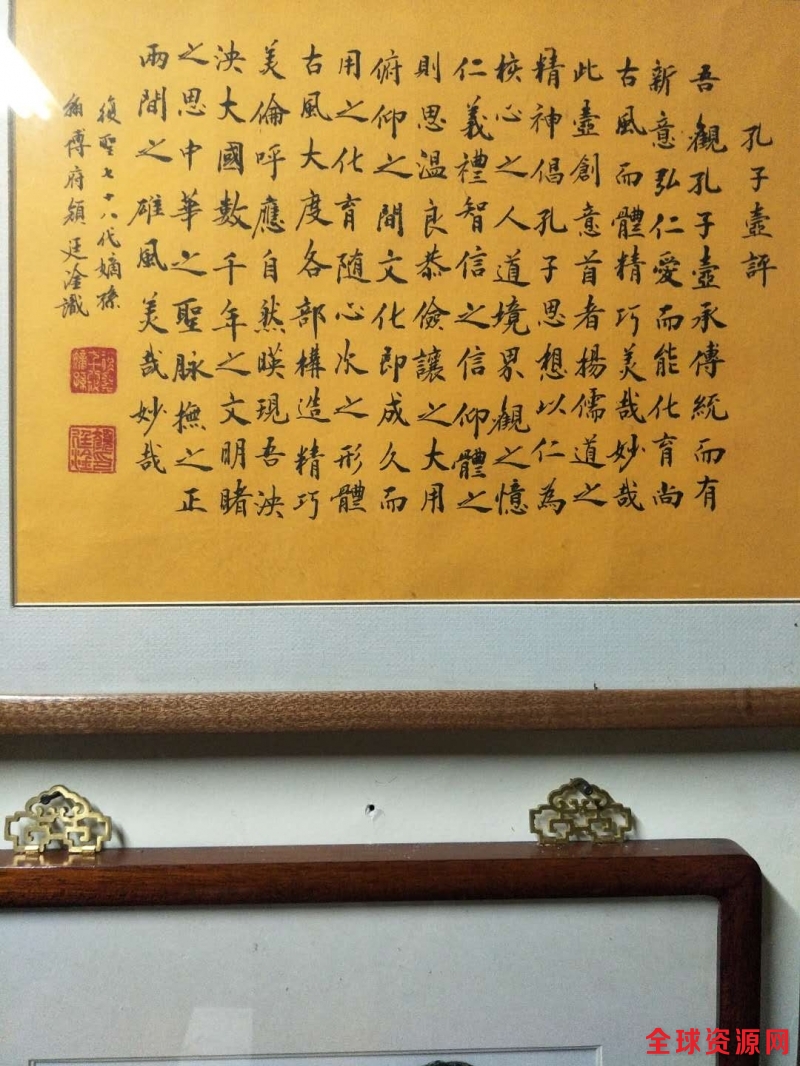 孔子壺評
吾觀孔子壺承傳統而有
新意弘仁愛而能化育尚
古風而體精巧美哉妙哉
此壺創意首者揚儒道之
精神倡孔子思想以仁為
核心之人道境界觀之憶
仁義禮智信之信仰體之
則思溫良恭儉讓之大用
俯仰之間文化即成久而
用之化育隨心次之形體
古風大度各部構造精巧
美倫呼應自然暎現吾泱
泱大國數千年之文明睹
之思中華之聖脈撫之正
兩間之雄風美哉妙哉
復聖七十八代嫡孫
翰博府顏廷淦識
全球资源网